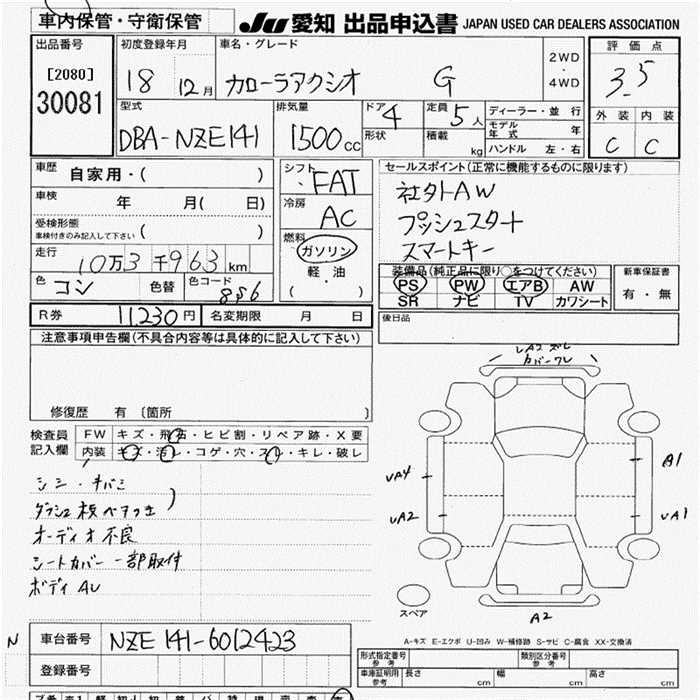 車内保管・守衛保管
JU 愛知 出品申込書 JAPAN USED CAR DEALERS ASSOCIATION
出品番号
[2080]
30081
初度登録年月
18 12月
車名・グレード
カローラアクシオ G
2WD
・
4WD
評価点
3.5
外装 内装
C C
型式
DBA-NZE141
排気量
1500cc
ドア 4
形状
定員 5人
積載 kg
ディーラー・並行
モデル年式 年
ハンドル 左・右
車歴
自家用・( )
車検 年 月( 日)
受検形態
車検付きのみ記入して下さい ( )
走行
10万3千963km
色 コン 色替 色コード 8S6
シフト
FAT
冷房
AC
燃料
ガソリン
・
軽油
・
( )
セールスポイント(正常に機能するものに限ります)
社外AW
プッシュスタート
スマートキー
装備品(純正品に限り○をつけてください)
PS PW エアB AW
SR ナビ TV カワシート
新車保証書
有・無
後日品
R券 11,230円 名変期限 月 日
注意事項申告欄(不具合内容等は具体的に記入して下さい)
修復歴 有 〔箇所 〕
検査員記入欄
FW キズ・飛石・ヒビ割・リペア跡・X要
内装 キズ・汚レ・コゲ・穴・スレ・キレ・破レ
オーディオ不良
シートカバー一部取付
ボディAU
カバーワレ
UA4
UA2
A1
UA1
A2
スペア
A-キズ E-エクボ U-凹み W-補修跡 S-サビ C-腐食 XX-交換済
N
車台番号 NZE141-6012423
登録番号
形式指定番号 参考
類別区分番号 参考
車庫証明用 参考 長さ cm 幅 cm 高さ cm